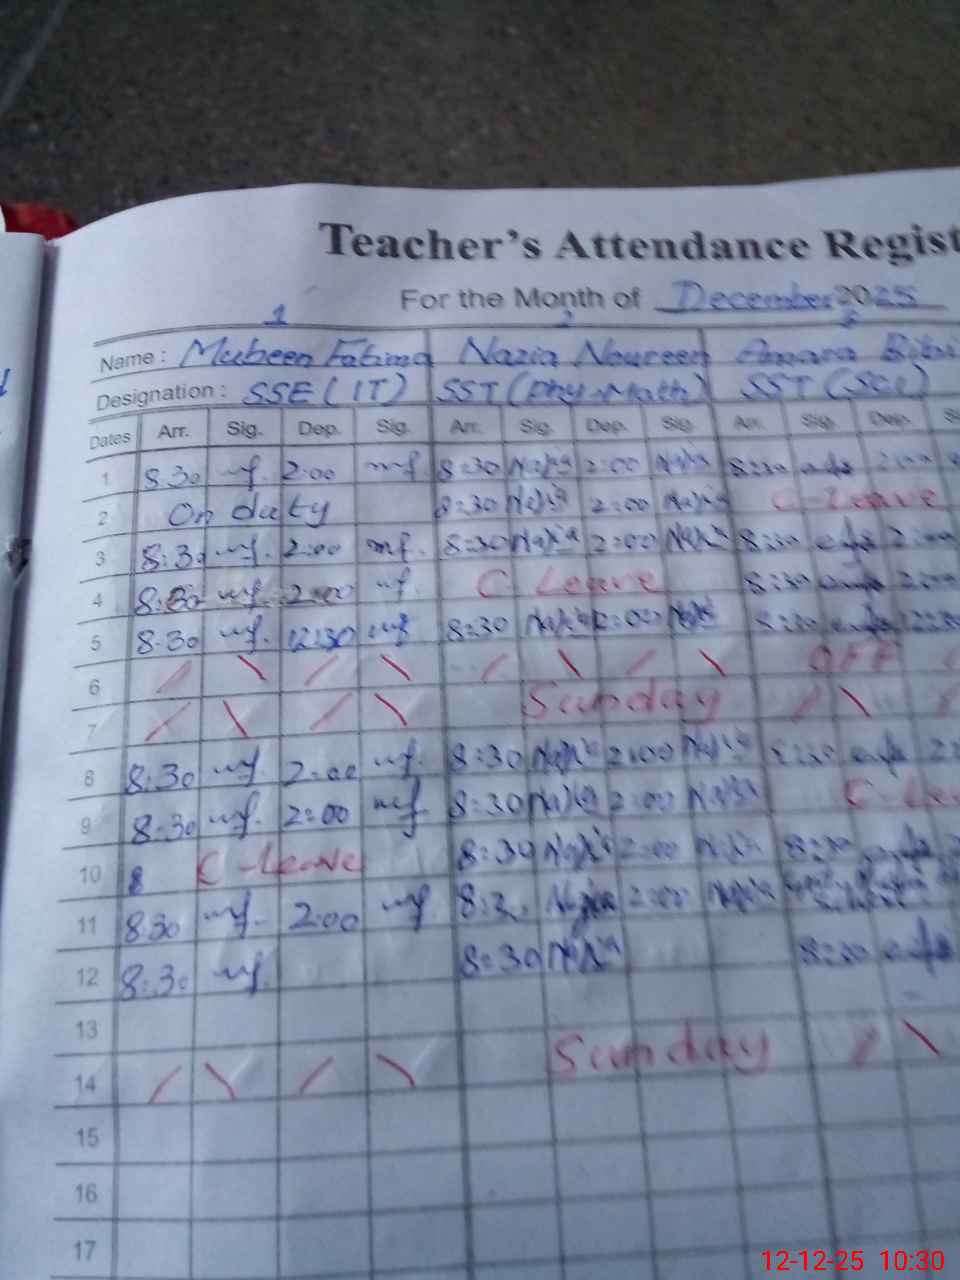 Teacher's Attendance Regist
For the Month of December 2025
1 2 3
Name : Mubeen Fatima Nazia Noureen Amara Bibi
Designation : SSE (IT) SST (Phy-Math) SST (Sci)
Dates Arr. Sig. Dep. Sig. Arr. Sig. Dep. Sig. Arr. Sig. Dep. S
1 8:30 mf. 2:00 mf 8:30 Nazia 2:00 Nazia 8:30 2:00
2 On duty 8:30 Nazia 2:00 Nazia C-Leave
3 8:30 mf. 2:00 mf. 8:30 Nazia 2:00 Nazia 8:30 2:00
4 8:30 mf. 2:00 mf. C Leave 8:30 2:00
5 8:30 mf. 12:30 mf 8:30 Nazia 2:00 Nazia 8:30 12:30
6 OFF
7 Sunday
8 8:30 mf. 2:00 mf. 8:30 Nazia 2:00 Nazia 8:30 2:
9 8:30 mf. 2:00 mf. 8:30 Nazia 2:00 Nazia C-Lea
10 8 C-Leave 8:30 Nazia 2:00 Nazia 8:30
11 8:30 mf. 2:00 mf. 8:3 Nazia 2:00 Nazia
12 8:30 mf. 8:30 Nazia 8:30
13
14 Sunday
15
16
17
12-12-25 10:30